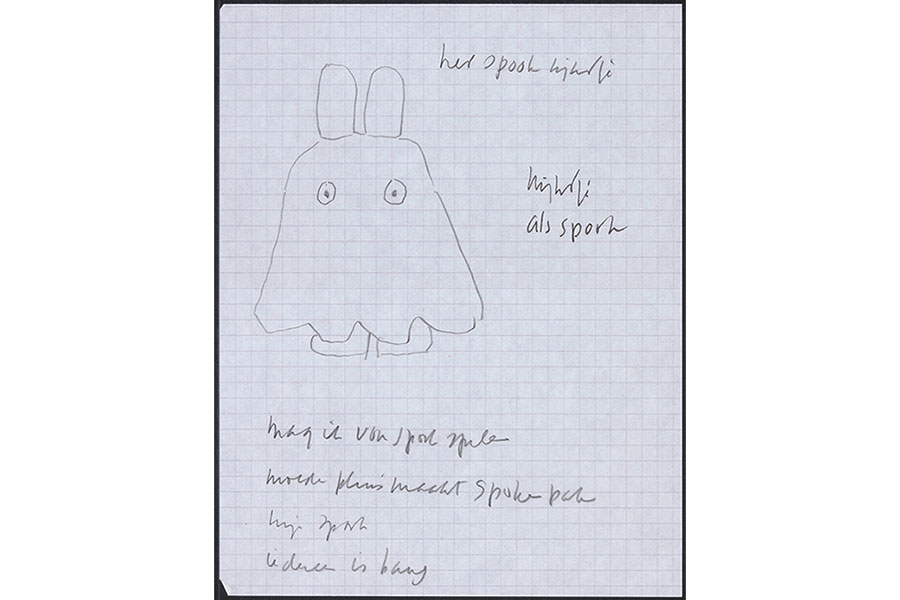 het spook nijntje
nijntje
als spook
mag ik voor spook spelen
moeder pluis maakt spoken pak
spook
iedereen is bang